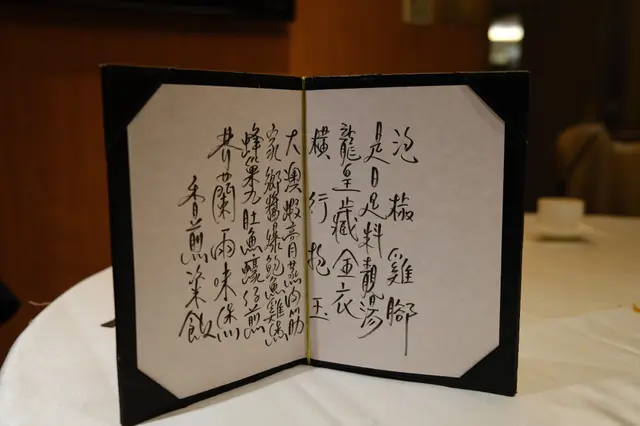 泡椒雞腳
是日足料靚湯
龍皇藏金衣
橫行抱玉
大澳蝦膏蒸肉筋
家鄉醬爆鮑魚雞煲
蜂巢九肚魚蠔仔煎
芥蘭兩味
香煎飯